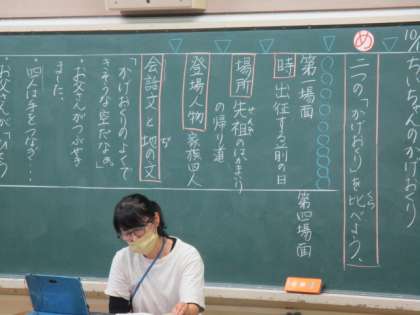 10/
ちいちゃんのかげおくり
め
二つの「かげおくり」を比べよう。
くら
第一場面
第四場面
時 出征する前の日
場所 先祖のはかまいり
せんぞ
の帰り道
登場人物 家族四人
会話文と地の文
じ
「かげおくりのよくで
きそうな空だなあ。」
・お父さんがつぶやき
ました。
・四人は手をつなぎ…
・お父さんが「ひとつ